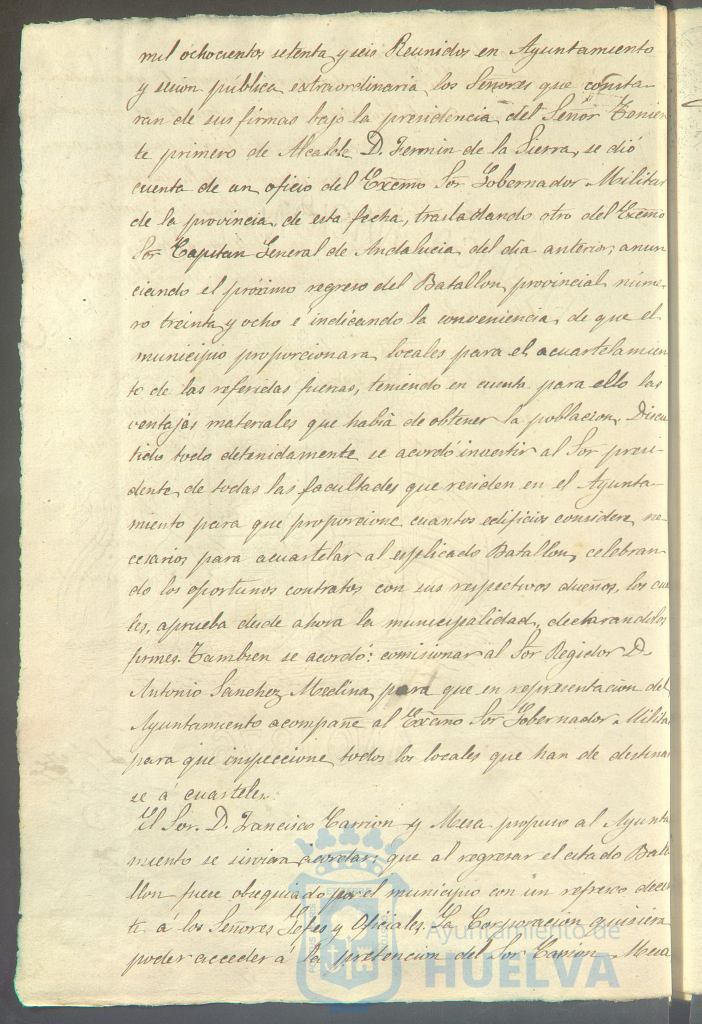 mil ochocientos setenta y seis Reunidos en Ayuntamiento
y sesion pública extraordinaria los Señores que consta-
ran de sus firmas bajo la presidencia del Señor Tenien
te primero de Alcalde D. Fermin de la Sierra, se dió
cuenta de un oficio del Excmo Sor Gobernador Militar
de la provincia de esta fecha, trasladando otro del Excmo
Sor Capitan General de Andalucia del dia anterior; anun
ciando el próximo regreso del Batallon provincial núme-
ro treinta y ocho é indicando la conveniencia de que el
municipio proporcionara locales para el acuartelamien
to de las referidas fuerzas, teniendo en cuenta para ello las
ventajas materiales que habia de obtener la poblacion. Discu
tido todo detenidamente se acordó investir al Sor presi-
dente de todas las facultades que residen en el Ayunta-
miento para que proporcione cuantos edificios considere ne-
cesarios para acuartelar al esplicado Batallon, celebran-
do los oportunos contratos con sus respectivos dueños, los cua
les, aprueba desde ahora la municipalidad, declarandolos
firmes. Tambien se acordó: comisionar al Sor Regidor D.
Antonio Sanchez Medina para que en representacion del
Ayuntamiento acompañe al Excmo Sor Gobernador Milita
para que inspeccione todos los locales que han de destinar
se á cuarteles.
El Sor. D. Francisco Carrion y Mesa propuso al Ayunta
miento se sirviera acordar: que al regresar el citado Bata
llon fuese obsequiado por el municipio con un refresco decen
te á los Señores Gefes y Oficiales. La Corporacion quisiera
poder acceder á la pretencion del Sor Carrion Mesa
Ayuntamiento de
HUELVA